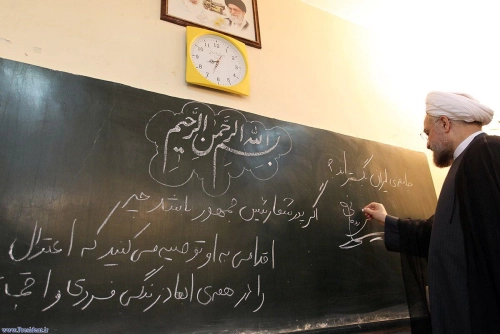 بسم الله الرحمن الرحیم
ایران
اگر پدر شما رئیس جمهور باشد چه
اقدامی به او توصیه می کنید که اعتدال
را در همه ی ابعاد زندگی فردی و
www.President.ir